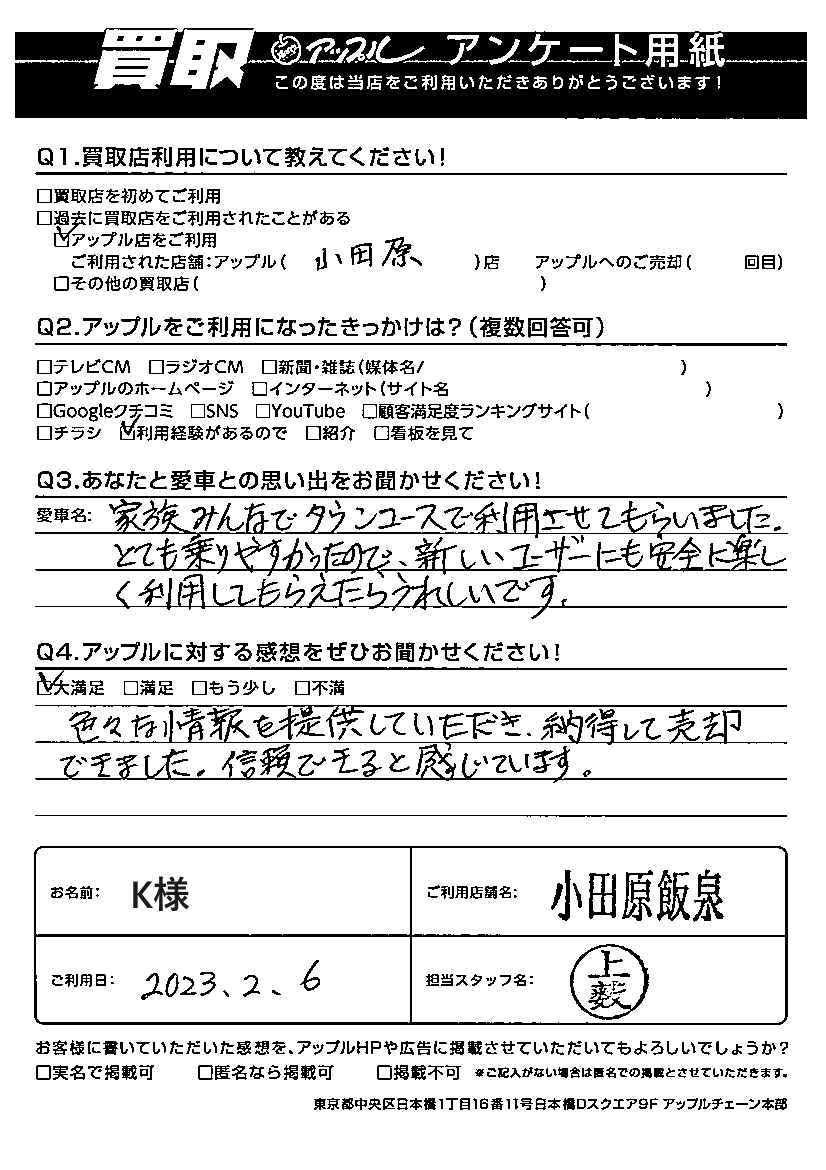 買取 アップル アンケート用紙
この度は当店をご利用いただきありがとうございます!
Q1.買取店利用について教えてください!
□買取店を初めてご利用
□過去に買取店をご利用されたことがある
☑アップル店をご利用
ご利用された店舗:アップル( 小田原 )店 アップルへのご売却( 回目)
□その他の買取店( )
Q2.アップルをご利用になったきっかけは?(複数回答可)
□テレビCM □ラジオCM □新聞・雑誌(媒体名/ )
□アップルのホームページ □インターネット(サイト名 )
□Googleクチコミ □SNS □YouTube □顧客満足度ランキングサイト( )
□チラシ ☑利用経験があるので □紹介 □看板を見て
Q3.あなたと愛車との思い出をお聞かせください!
愛車名: 家族みんなでタウンユースで利用させてもらいました。
とても乗りやすかったので、新しいユーザーにも安全に楽し
く利用してもらえたらうれしいです。
Q4.アップルに対する感想をぜひお聞かせください!
☑大満足 □満足 □もう少し □不満
色々な情報を提供していただき、納得して売却
できました。信頼できると感じています。
お名前: K様 ご利用店舗名: 小田原飯泉
ご利用日: 2023、2、6 担当スタッフ名: 上
お客様に書いていただいた感想を、アップルHPや広告に掲載させていただいてもよろしいでしょうか?
□実名で掲載可 □匿名なら掲載可 □掲載不可 ※ご記入がない場合は匿名での掲載とさせていただきます。
東京都中央区日本橋1丁目16番11号日本橋Dスクエア9F アップルチェーン本部